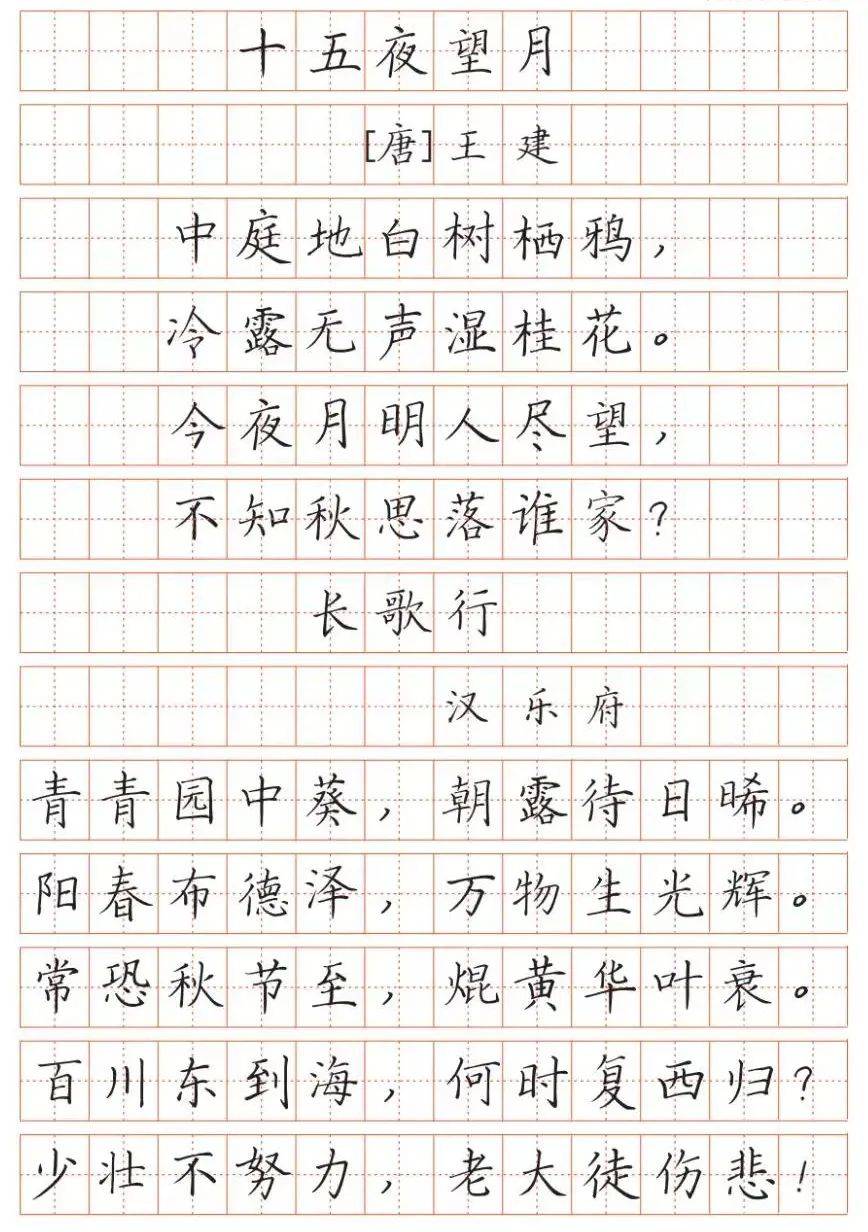 十五夜望月
[唐]王建
中庭地白树栖鸦，
冷露无声湿桂花。
今夜月明人尽望，
不知秋思落谁家？
长歌行
汉乐府
青青园中葵，朝露待日晞。
阳春布德泽，万物生光辉。
常恐秋节至，焜黄华叶衰。
百川东到海，何时复西归？
少壮不努力，老大徒伤悲！